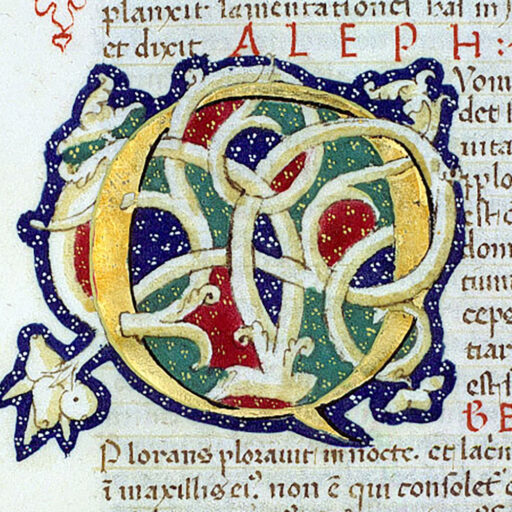 planxit lamentationem hac in
et dixit ALEPH:
Q Vom
det
uita
est
dom
tium
cepe
tiar
est
BE
Plorans plorauit in nocte. et lac
ī maxillis ei⁹ non ē qui consolet